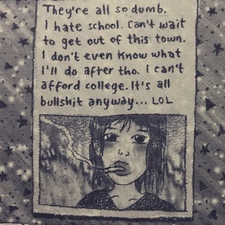 They're all so dumb.
I hate school. Can't wait
to get out of this town.
I don't even know what
I'll do after tho. I can't
afford college. It's all
bullshit anyway... LOL